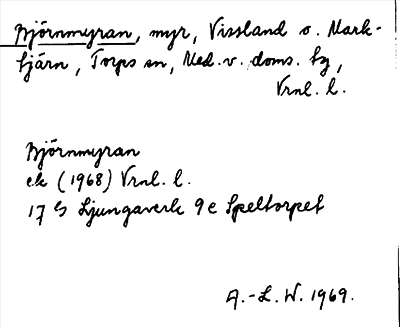 Björnmyran, myr, Vissland o. Mark-
tjärn, Torps sn, Med. v. doms. tg,
Vrnl. l.
Björnmyran
ek (1968) Vrnl. l.
17 G Ljungaverk 9e Speltorpet
A.-L. W. 1969.